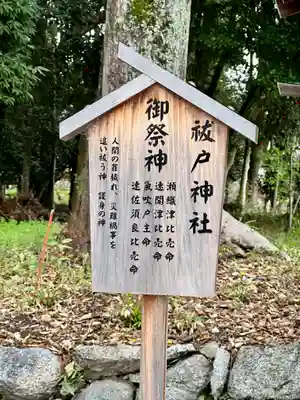 祓戸神社
御祭神
瀬織津比売命
速開津比売命
氣吹戸主命
速佐須良比売命
人間の罪穢れ、災難禍事を
追い祓う神 護身の神